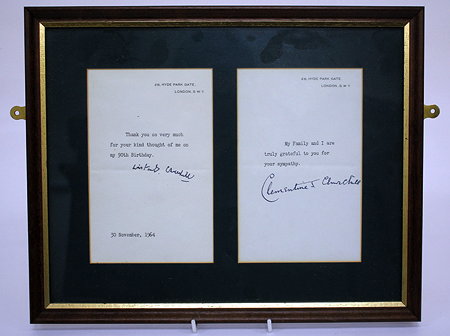 28, HYDE PARK GATE,
LONDON, S.W.7.
Thank you so very much
for your kind thought of me on
my 90th Birthday.
Winston S. Churchill
30 November, 1964
28, HYDE PARK GATE,
LONDON, S.W.7.
My Family and I are
truly grateful to you for
your sympathy.
Clementine S. Churchill